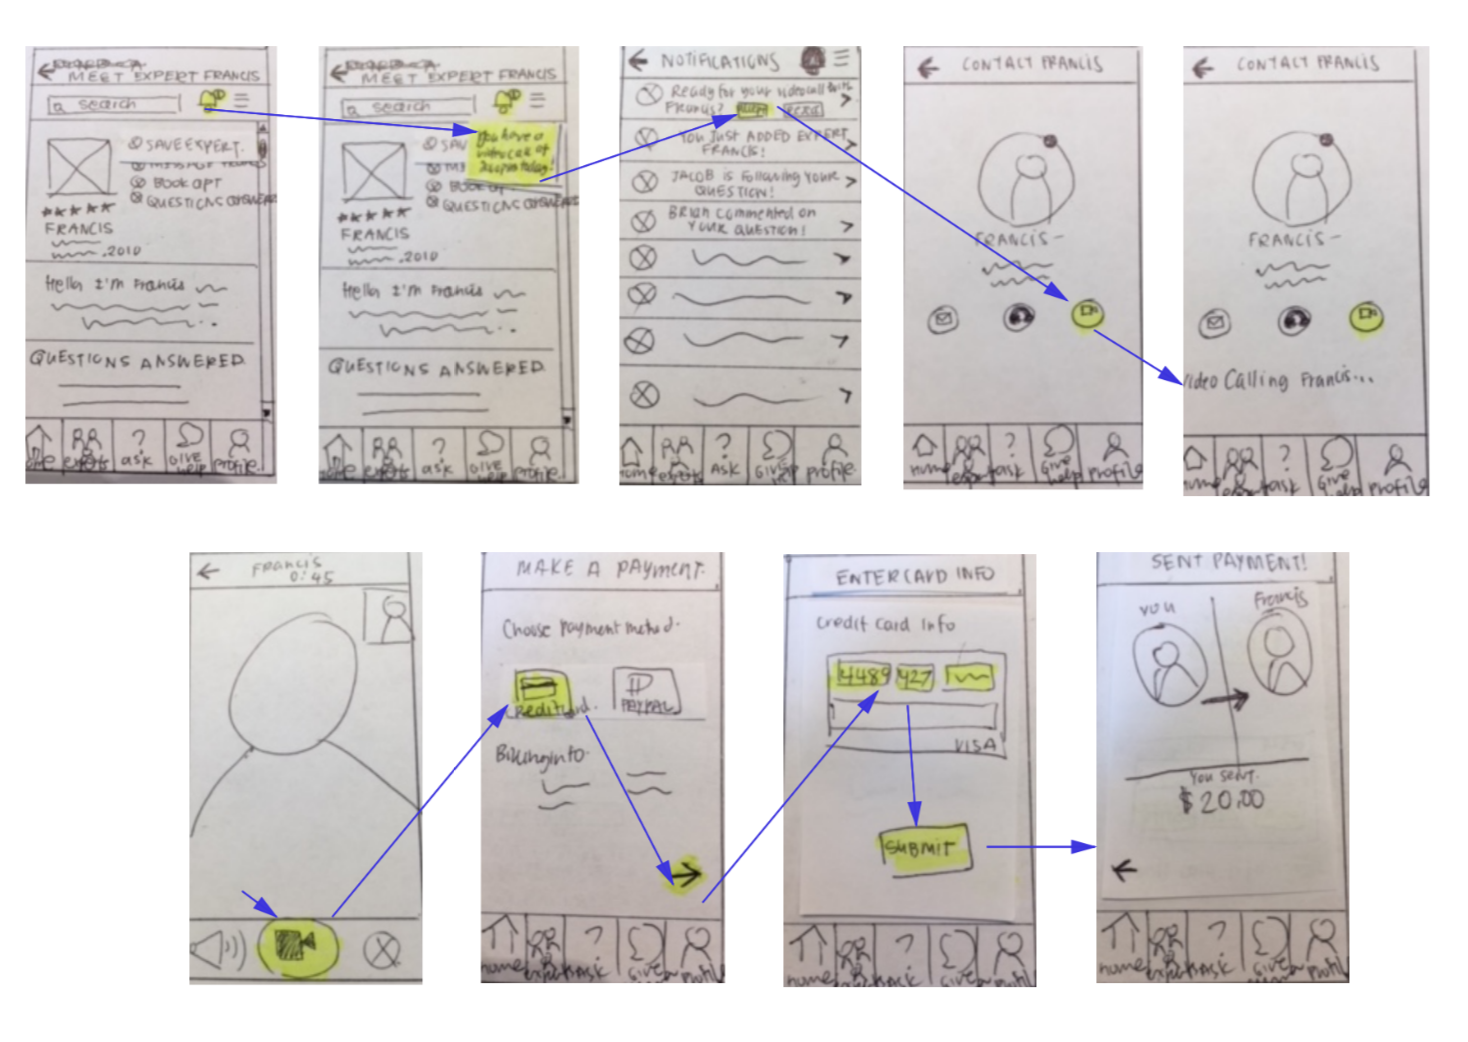 MEET EXPERT FRANCIS
search
SAVE EXPERT.
Book apt
QUESTIONS ANSWERS
FRANCIS
2010
Hello I'm Francis
QUESTIONS ANSWERED.
home
experts
ask
GIVE
help
profile.
MEET EXPERT FRANCIS
search
You have a
video call at
today!
SAV
Book ap
QUESTIONS ANSWERS
FRANCIS
.2010
Hello I'm Francis
QUESTIONS ANSWERED.
home
experts
ask
GIVE
help
profile.
NOTIFICATIONS
Ready for your videocall with
Francis?
YOU JUST ADDED EXPERT
FRANCIS!
JACOB is Following YOUR
QUESTION!
BRIAN commented on
YOUR QUESTION!
home
experts
ASK
GIVE
help
profile.
CONTACT FRANCIS
FRANCIS-
home
ask
Give
help
profile
CONTACT FRANCIS
FRANCIS-
Video Calling Francis...
home
ask
Give
help
profile
FRANCIS
0:45
MAKE A PAYMENT.
Choose payment method.
Credit Card.
PAYPAL
Billing info.
home
ASK
GIVE
profil
ENTER CARD INFO
Credit Card Info
4489 427
VISA
SUBMIT
home
ASK
GIVE
profil
SENT PAYMENT!
YOU
Francis
You sent.
$20.00
home
ASK
GIVE
profil